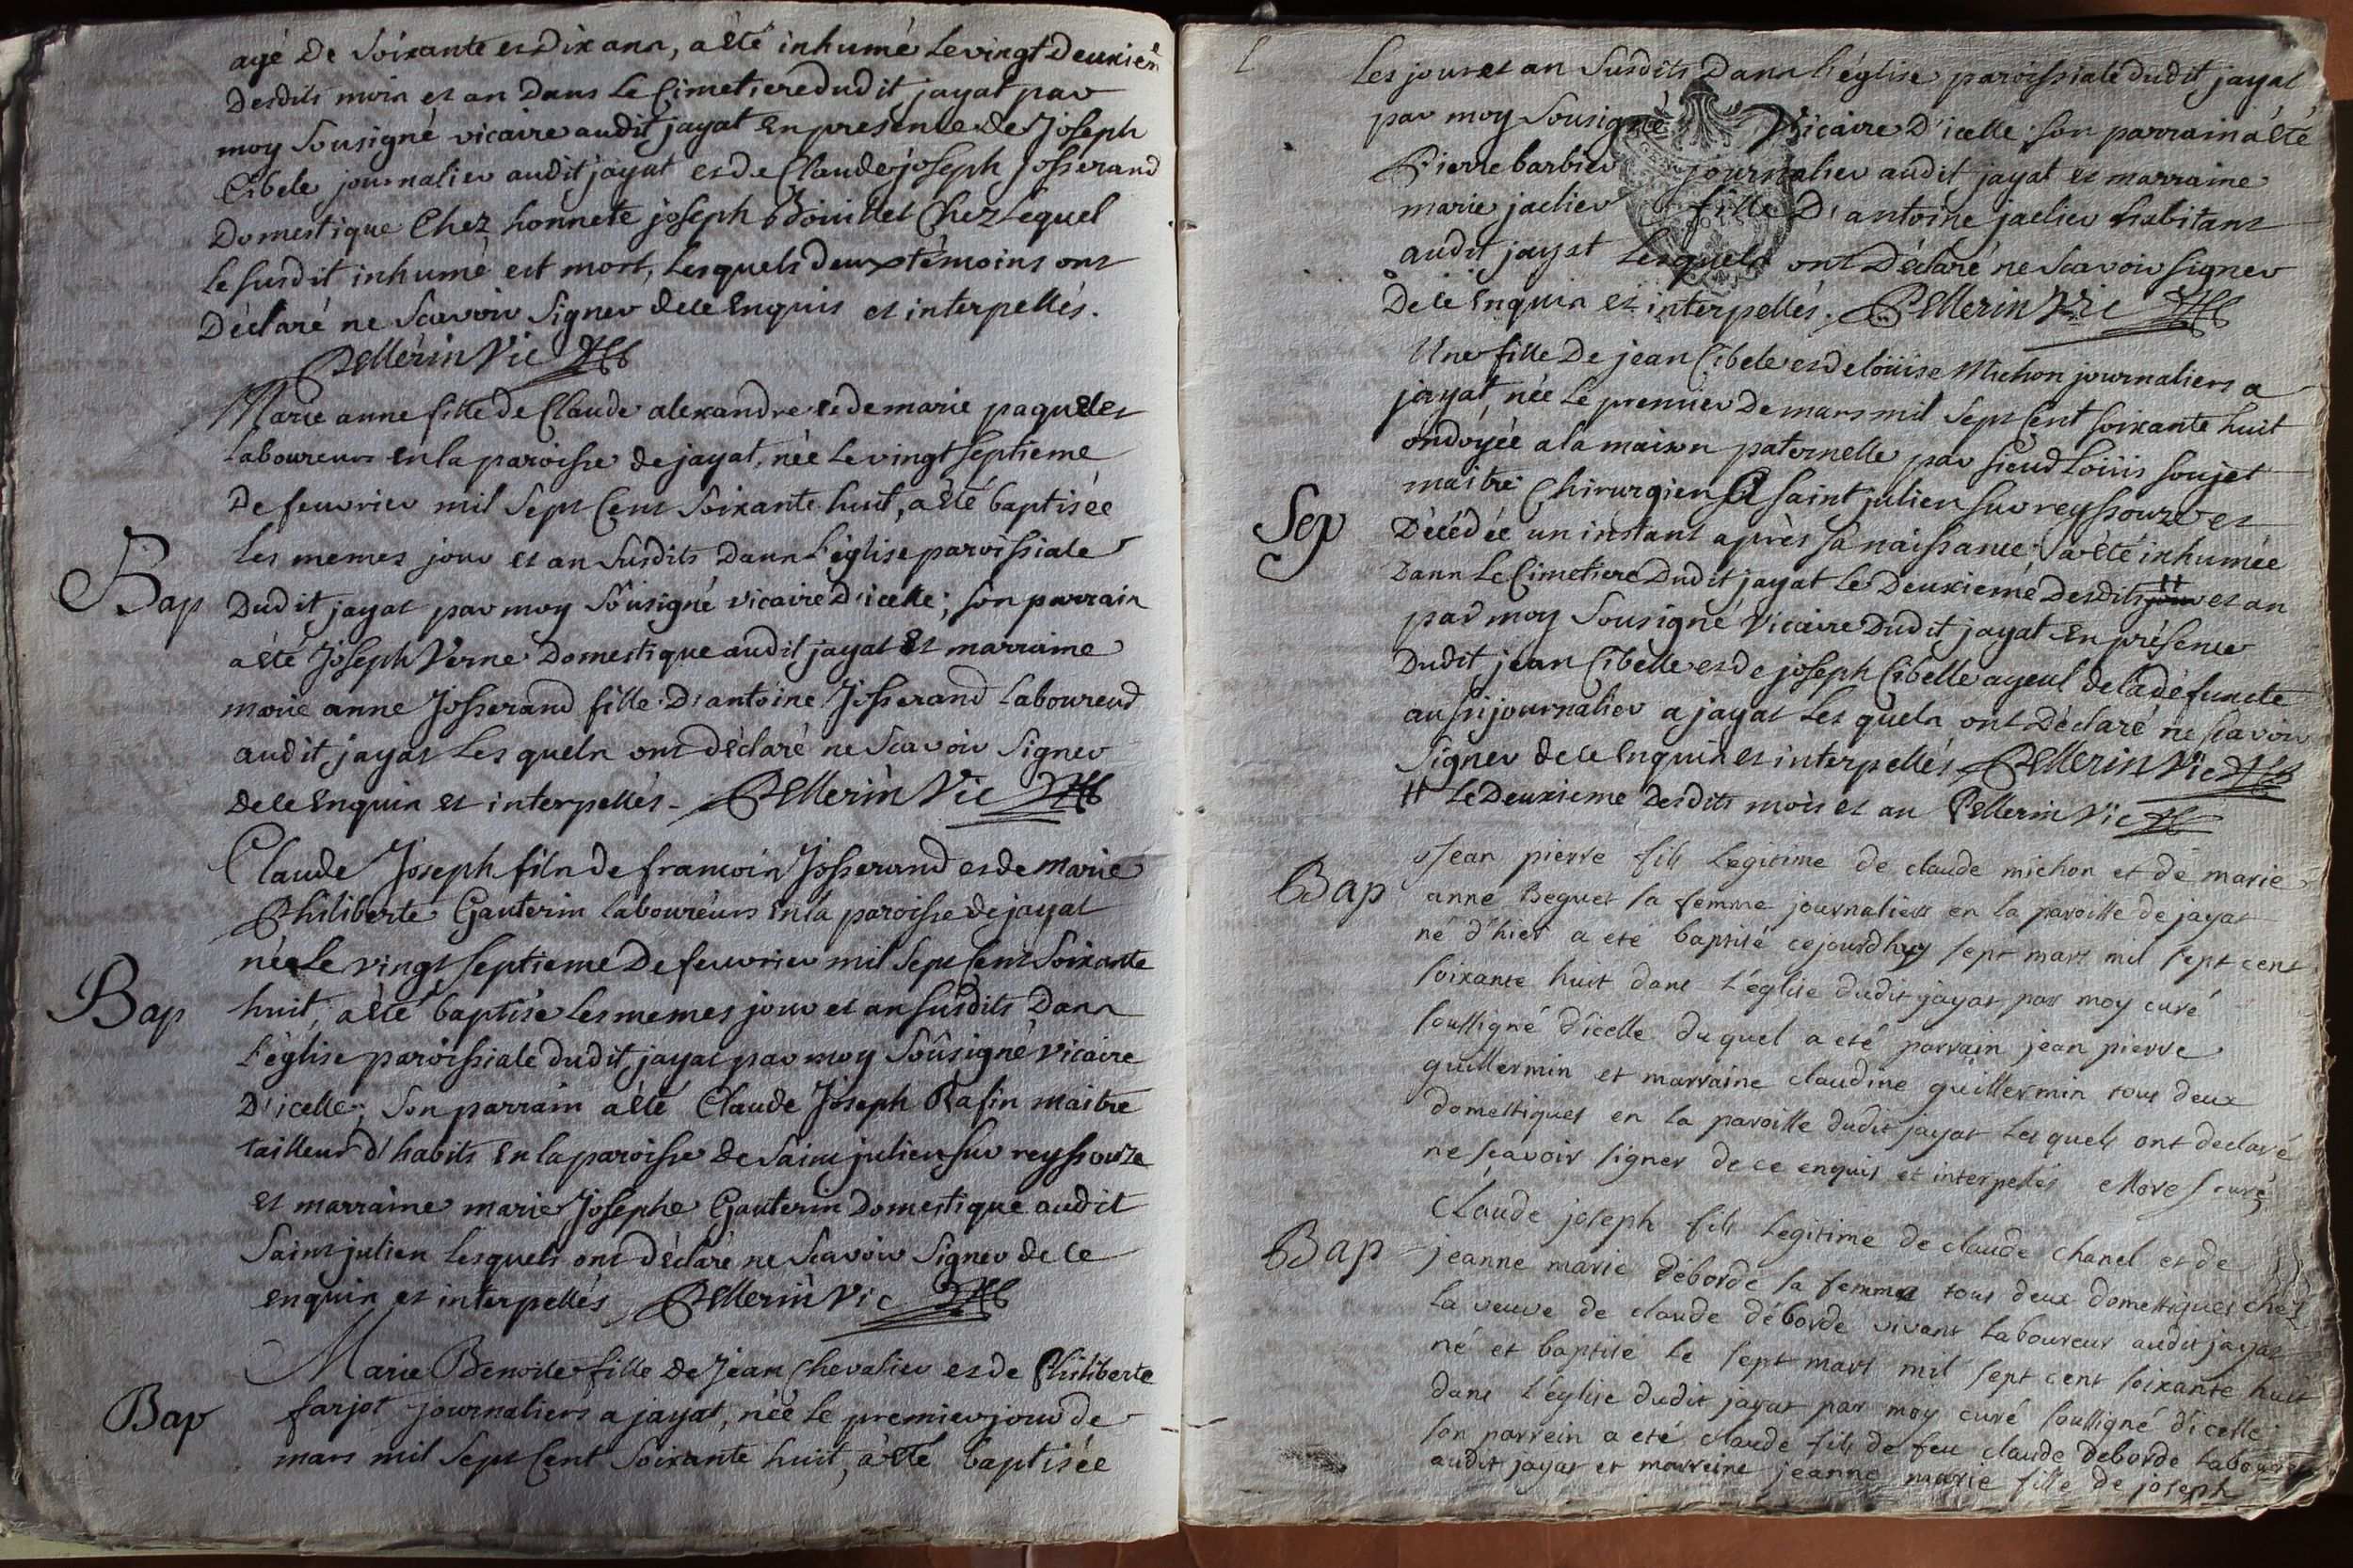 agé de soixante et dix ans, a été inhumé le vingt deuxièm
desdits mois et an dans le cimetiere dudit jayat par
moy sousigné vicaire audit jayat en presence de Joseph
Cibele journalier audit jayat et de Claude joseph Josserand
Domestique chez honnete joseph Bouillet chez lequel
le susdit inhumé est mort, lesquels deux témoins ont
déclaré ne scavoir signer de ce enquis et interpellés.
Pellerin Vic
Marie anne fille de Claude alexandre et de marie paquelet
laboureurs en la paroisse de jayat, née le vingt septieme
de feuvrier mil sept cent soixante huit, a été baptisée
les memes jour et an susdits dans l'église paroissiale
Bap
dudit jayat par moy sousigné vicaire d'icelle; son parrain
a été Joseph Verne domestique audit jayat et marraine
marie anne Josserand fille d'antoine Josserand laboureur
audit jayat lesquels ont déclaré ne scavoir signer
de ce enquis et interpellés. Pellerin Vic
Claude Joseph fils de francois Josserand et de marie
Philiberte Gauterin laboureurs en la paroisse de jayat
né le vingt septieme de feuvrier mil sept cent soixante
Bap
huit, a été baptisé les memes jour et an susdits dans
l'église paroissiale dudit jayat par moy sousigné vicaire
d'icelle; son parrain a été Claude Joseph Rafin maitre
tailleur d'habits en la paroisse de saint julien sur reyssouze
et marraine marie Josephe Gauterin domestique audit
saint julien lesquels ont déclaré ne scavoir signer de ce
enquis et interpellés Pellerin Vic
Marie Benoite fille de Jean Chevalier et de Philiberte
Bap
farjot journaliers a jayat, née le premier jour de
mars mil sept cent soixante huit, a été baptisée
les jour et an susdits dans l'église paroissiale dudit jayat
par moy sousigné vicaire d'icelle; son parrain a été
Pierre barbier journalier audit jayat et marraine
marie jaclier fille d'antoine jaclier habitant
audit jayat lesquels ont déclaré ne scavoir signer
de ce enquis et interpellés. Pellerin Vic
Une fille de jean Cibele et de loüise Michon journaliers a
jayat, née le premier de mars mil sept cent soixante huit
ondoyée a la maison paternelle par sieur Loüis soujet
maitre chirurgien a saint julien sur reyssouze et
Sep
décédée un instant après sa naissance, a été inhumée
dans le cimetiere dudit jayat le deuxieme desdits jour et an
par moy sousigné vicaire dudit jayat en présence
dudit jean Cibelle et de joseph Cibelle ayeul de la défuncte
aussi journalier a jayat lesquels ont déclaré ne scavoir
signer de ce enquis et interpellés Pellerin Vic
# le deuxieme desdits mois et an Pellerin Vic
Jean pierre fils legitime de claude michon et de marie
Bap
anne Beguet sa femme journaliers en la paroisse de jayat
né d'hier a eté baptisé cejourdhuy sept mars mil sept cent
soixante huit dans l'église dudit jayat par moy curé
soussigné d'icelle duquel a eté parrain jean pierre
guillermin et marraine claudine guillermin tous deux
domestiques en la paroisse dudit jayat lesquels ont declaré
ne scavoir signer de ce enquis et interpellés curé
Claude joseph fils legitime de claude chanel et de
Bap
jeanne marie déborde sa femme tous deux domestiques chez
la veuve de claude déborde vivant laboureur audit jayat
né et baptisé le sept mars mil sept cent soixante huit
dans l'église dudit jayat par moy curé soussigné d'icelle
son parrein a eté claude fils de feu claude deborde laboureur
audit jayat et marreine jeanne marie fille de joseph